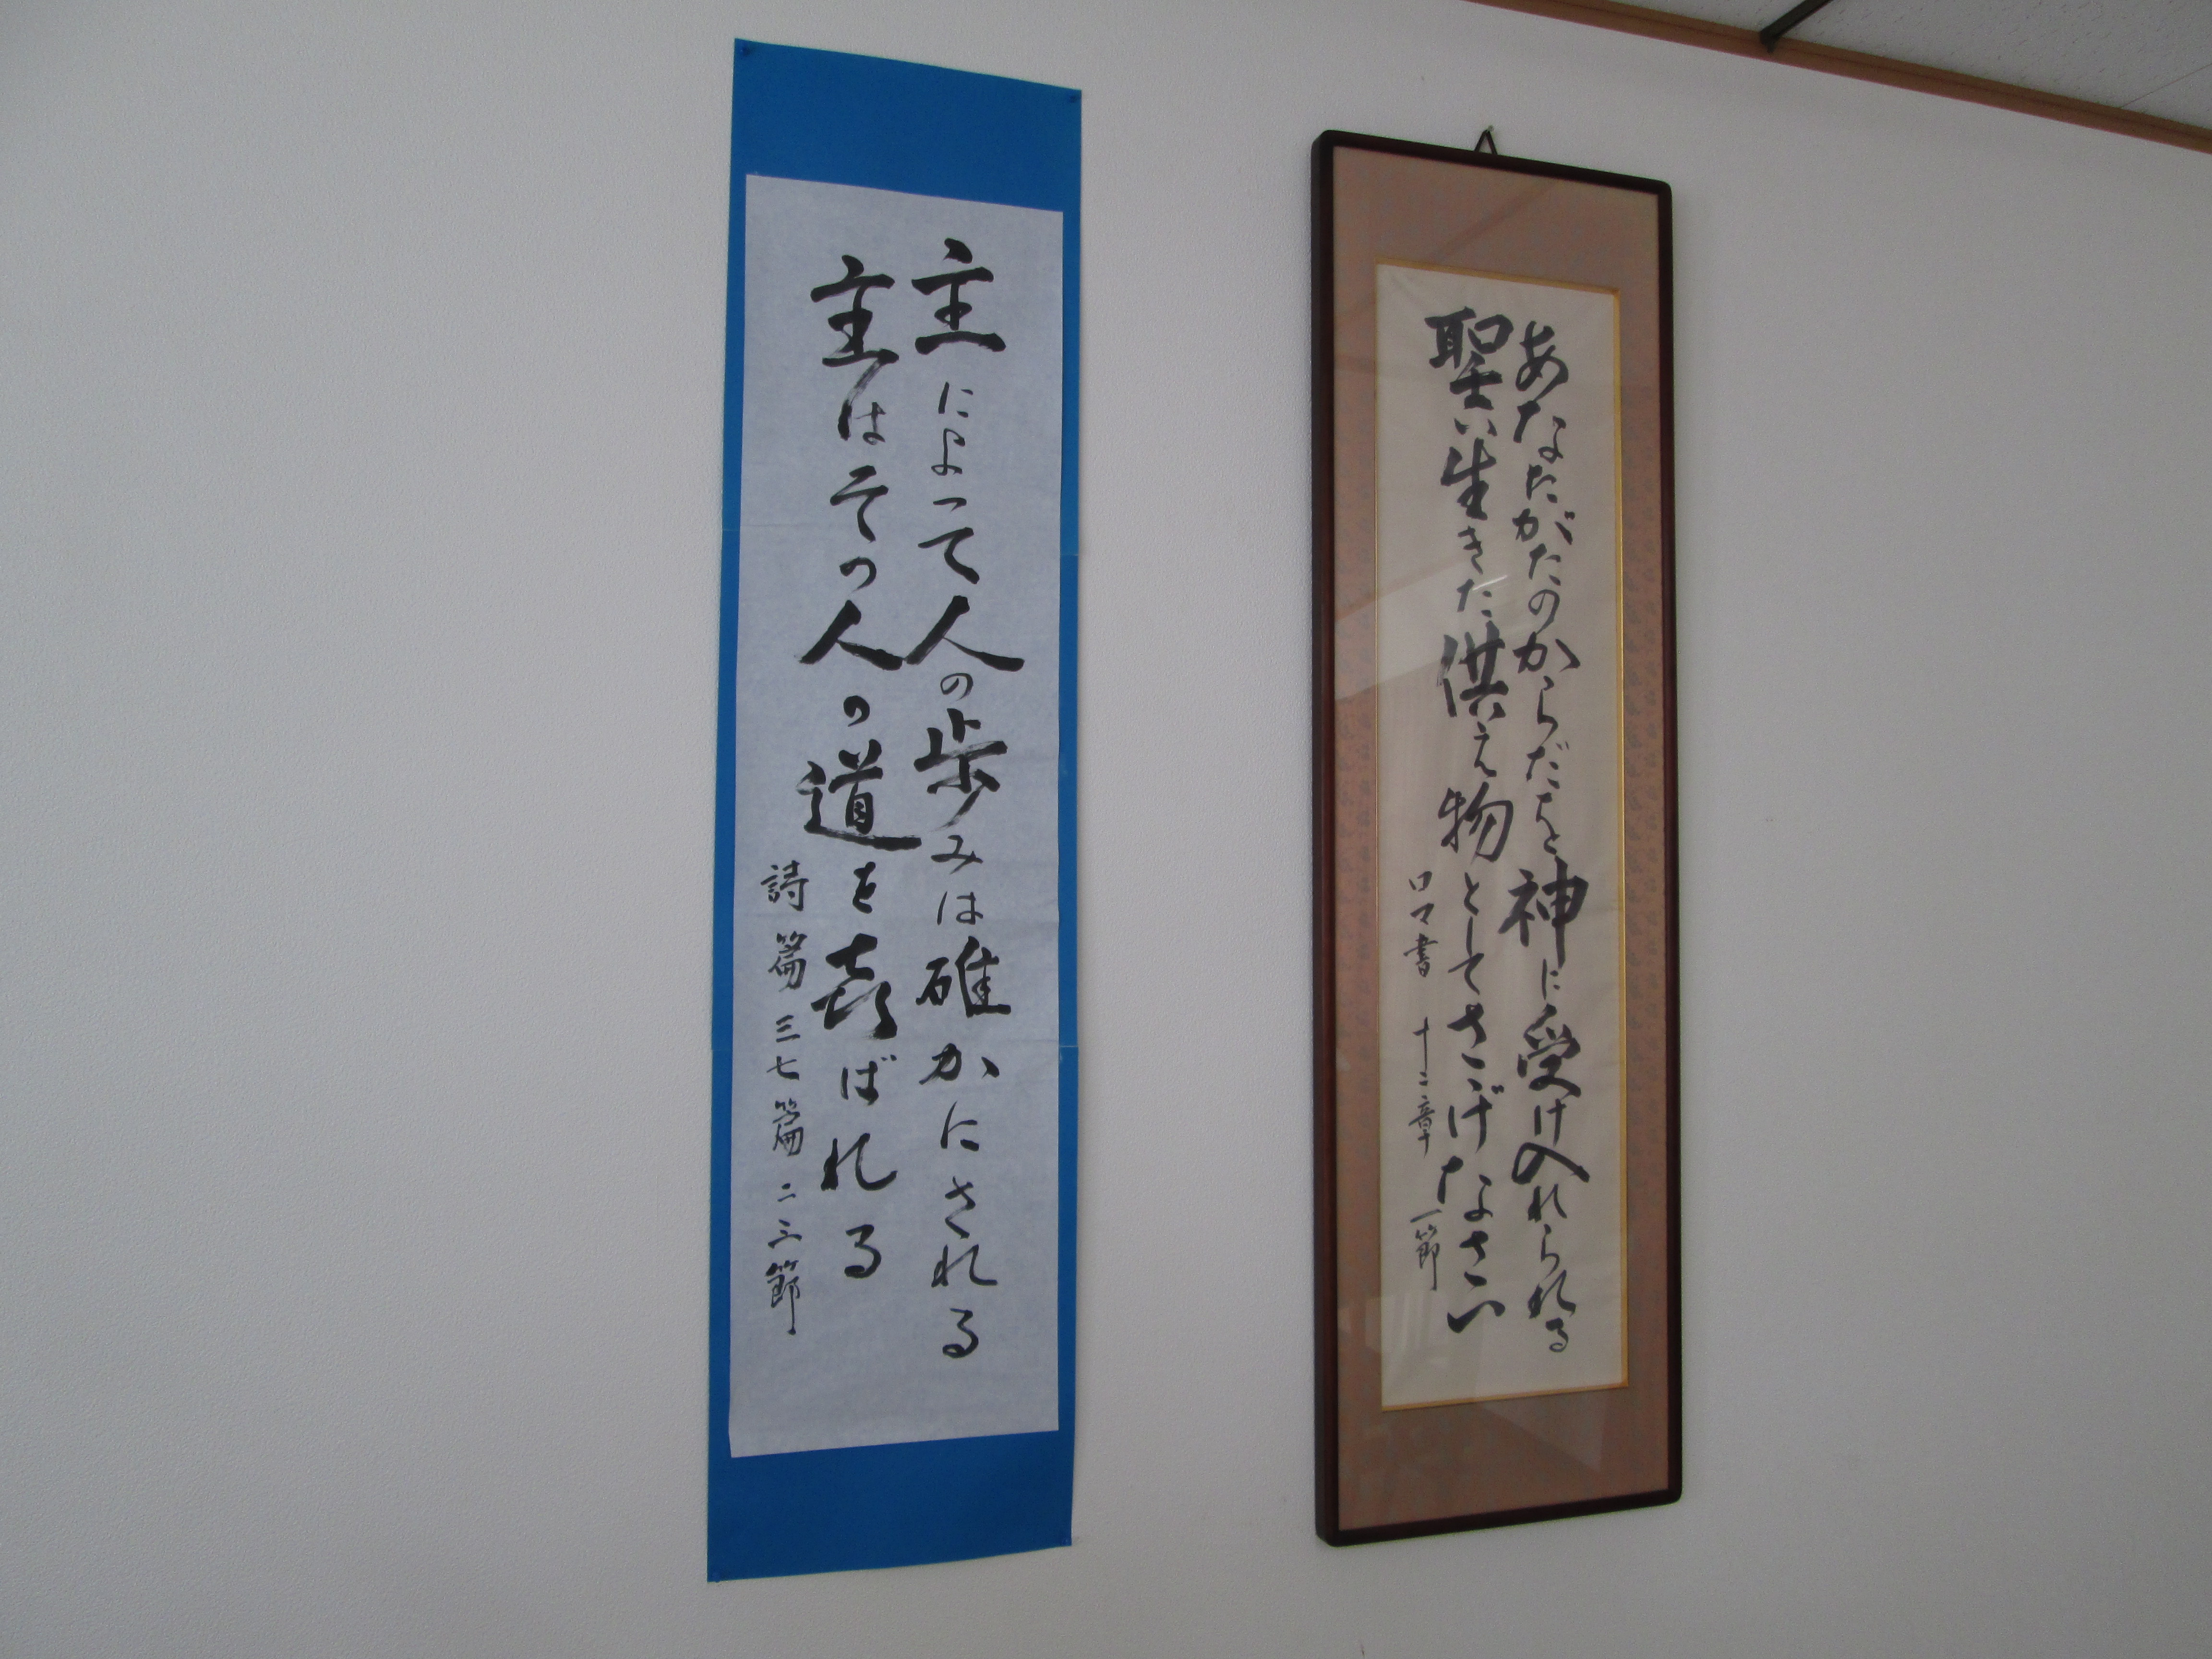 あなたがたのからだを神に受け入れられる
聖い生きた供え物としてさゝげなさい
ロマ書 十二章 一節
主によって人の歩みは確かにされる
主はその人の道を喜ばれる
詩篇 三七篇 二三節